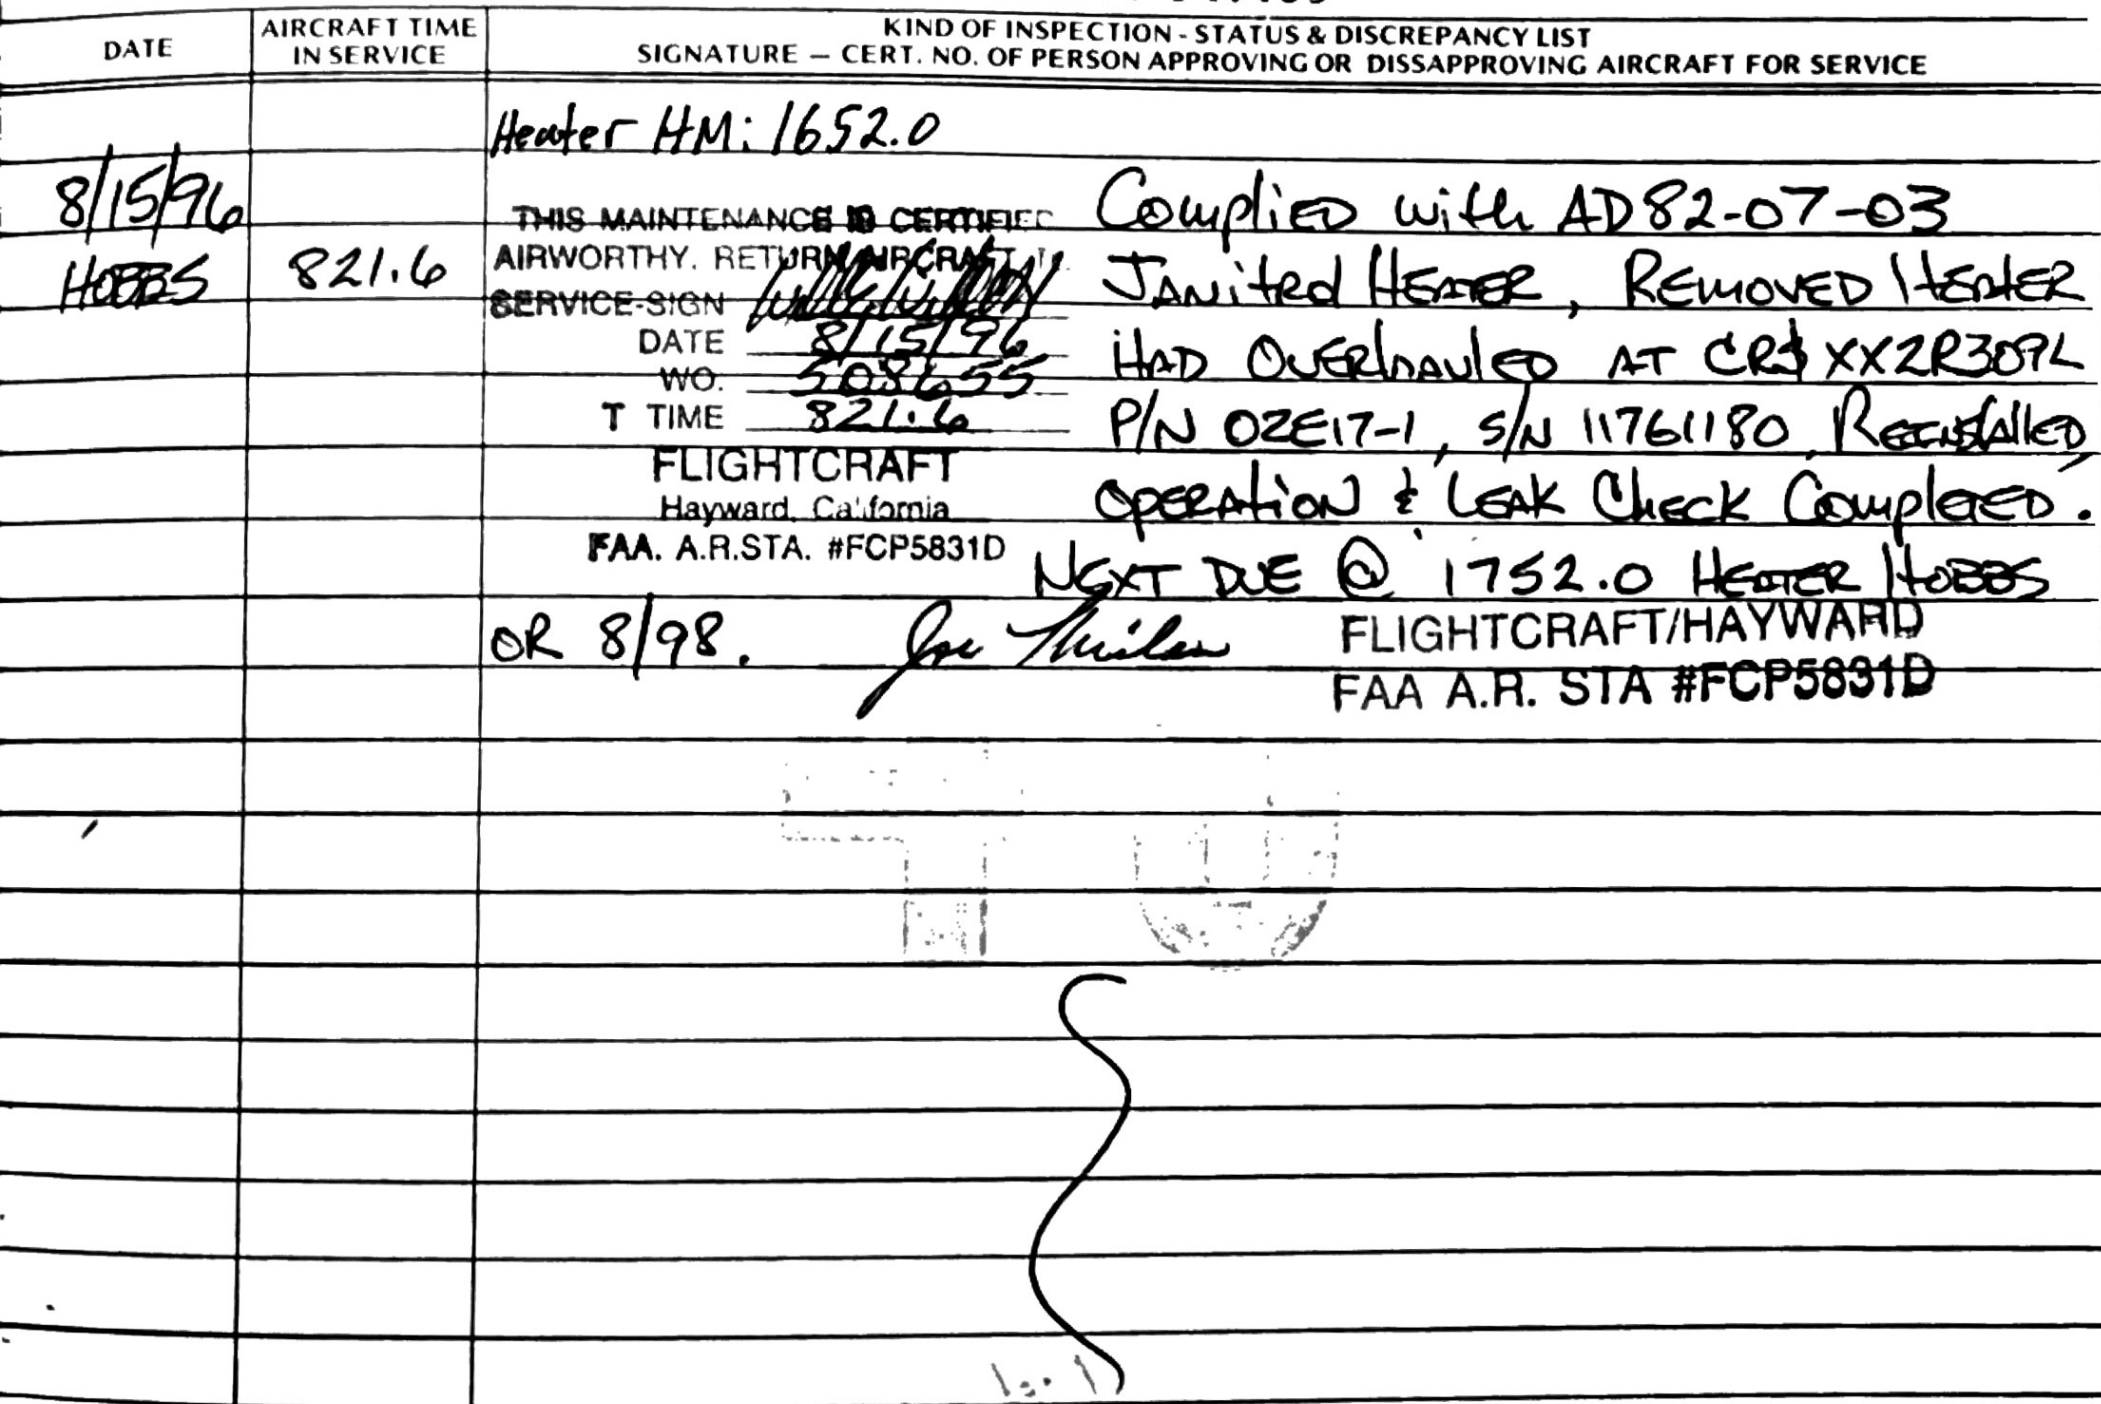 DATE
AIRCRAFT TIME
IN SERVICE
KIND OF INSPECTION - STATUS & DISCREPANCY LIST
SIGNATURE — CERT. NO. OF PERSON APPROVING OR DISSAPPROVING AIRCRAFT FOR SERVICE
Heater HM: 1652.0
8/15/96
HOBBS 821.6
THIS MAINTENANCE IS CERTIFIED
AIRWORTHY. RETURN AIRCRAFT
SERVICE-SIGN
DATE 8/15/96
WO. 508655
T TIME 821.6
FLIGHTCRAFT
Hayward, California
FAA. A.R.STA. #FCP5831D
Complied with AD 82-07-03
Janitrol HEATER, REMOVED HEATER
HAD OVERhauled AT CR$ XX2R309L
P/N OZE17-1, S/N 11761180, Reinstalled,
OPERATION & LEAK Check Completed.
NEXT DUE @ 1752.0 HEATER HOBBS
OR 8/98. Joe
FLIGHTCRAFT/HAYWARD
FAA A.R. STA #FCP5831D